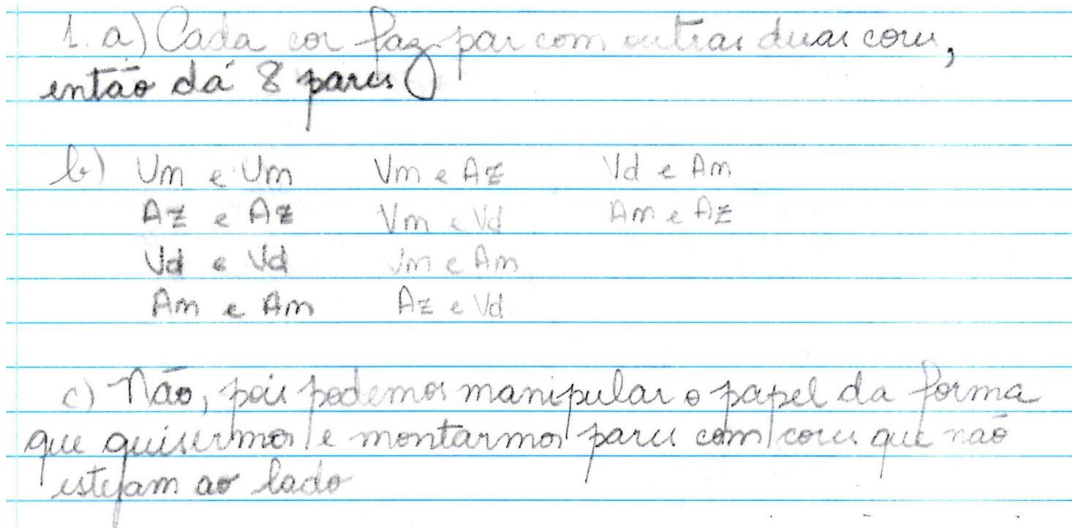 1. a) Cada cor faz par com outras duas cores,
então dá 8 pares
b) Vm e Vm Vm e Az Vd e Am
Az e Az Vm e Vd Am e Az
Vd e Vd Vm e Am
Am e Am Az e Vd
c) Não, pois podemos manipular o papel da forma
que quisermos e montarmos pares com cores que não
estejam ao lado